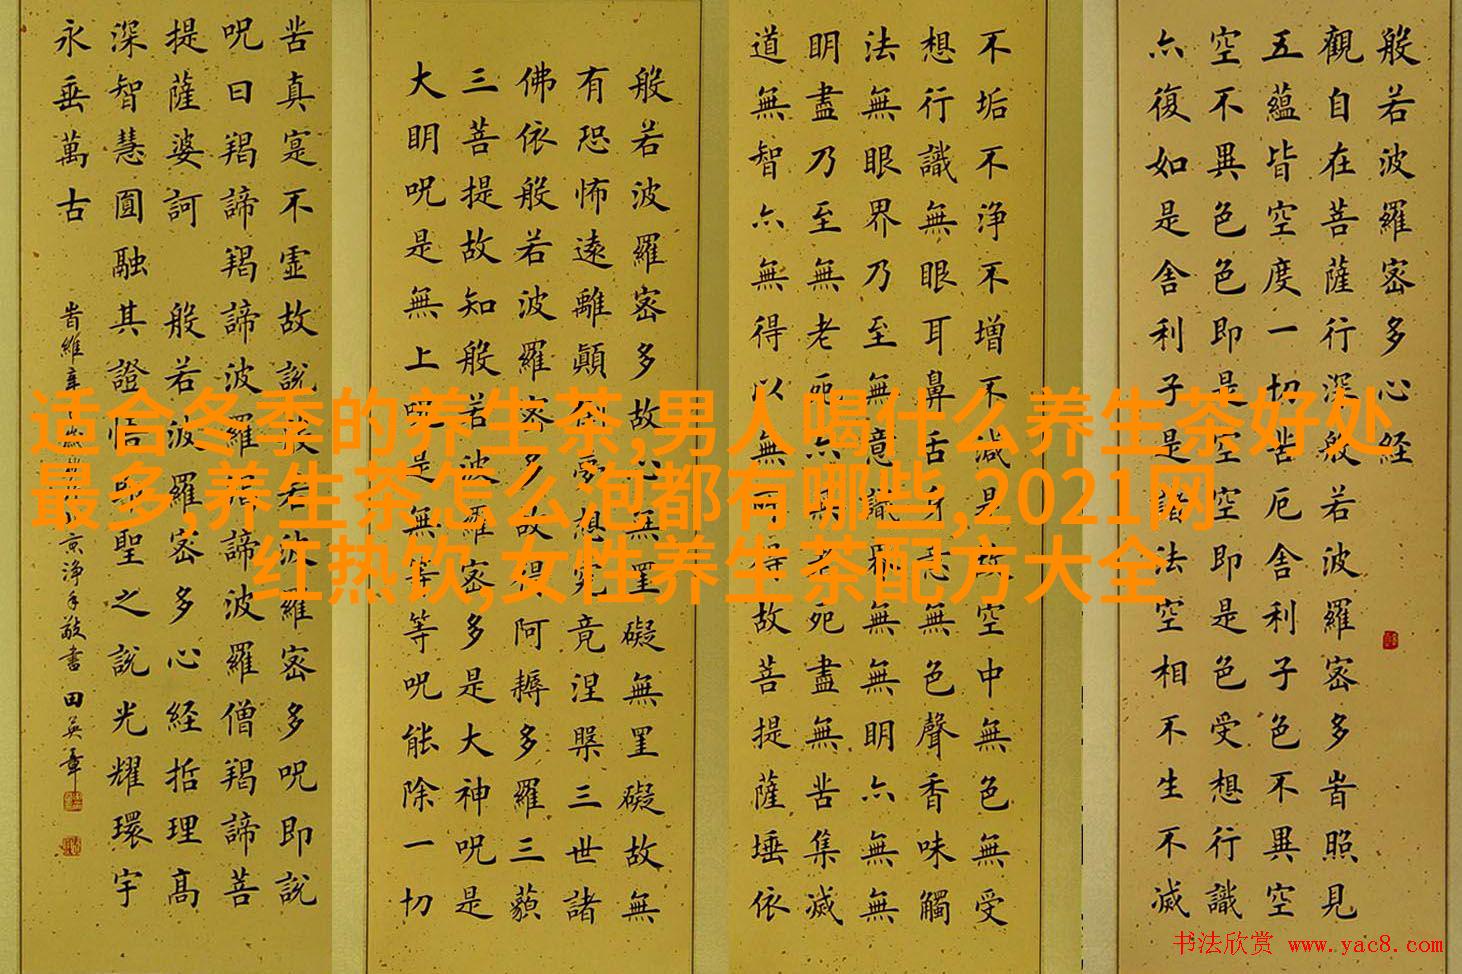 适合冬季的养生茶,男人喝什么养生茶好处
最多,养生茶怎么泡都有哪些,2021网
红热饮,女性养生茶配方大全
般若波羅密多心経
觀自在菩薩行深般若波羅密多旹照見
五蘊皆空度一切苦厄舍利子色不異空
空不異色色即是空空即是色受想行識
亦復如是舍利子是諸法空相不生不滅
不垢不淨不增不減是故空中無色無受
想行識無眼耳鼻舌身意無色聲香味觸
法無眼界乃至無意識界無無明亦無無
明盡乃至無老死亦無老死盡無苦集滅
道無智亦無得以無所得故菩提薩埵依
般若波羅密多故心無罣礙無罣礙故無
有恐怖遠離顛倒夢想究竟涅槃三世諸
佛依般若波羅密多故得阿耨多羅三藐
三菩提故知般若波羅密多是大神呪是
大明呪是無上呪是無等等呪能除一切
苦真寔不虛故說般若波羅密多呪即說
呪曰羯諦羯諦波羅羯諦波羅僧羯諦菩
提薩婆訶 般若波羅密多心経括理高
深智慧圓融其證悟即聖之說光耀環宇
永垂萬古
旹維 京淨手敬書 田英章
书法欣赏 www.yac8.com